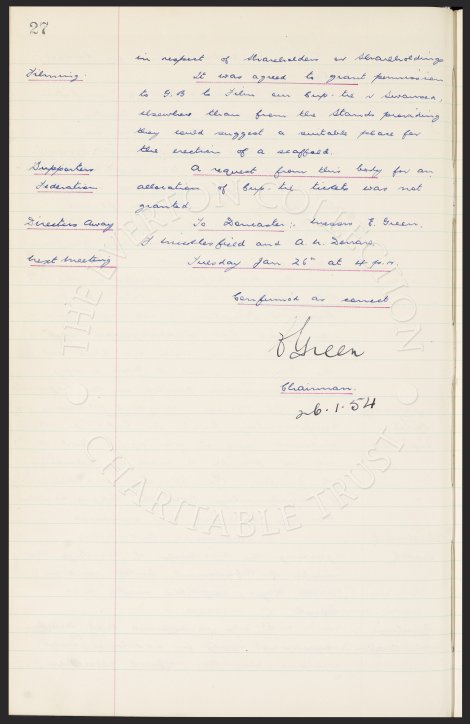 27
in respect of Shareholders or Shareholdings
Filming. It was agreed to grant permission
to G.B to Film our Cup-tie v Swansea,
elsewhere than from the Stands providing
they could suggest a suitable place for
the erection of a scaffold.
Supporters A request from this body for an
Federation allocation of Cup-tie tickets was not
granted
Directors Away To Doncaster:- Messrs E. Green,
and A. N. Denaro.
Next Meeting Tuesday Jan 26th at 4 p.m.
Confirmed as correct
Green
Chairman.
26.1.54
THE EVERTON COLLECTION
CHARITABLE TRUST